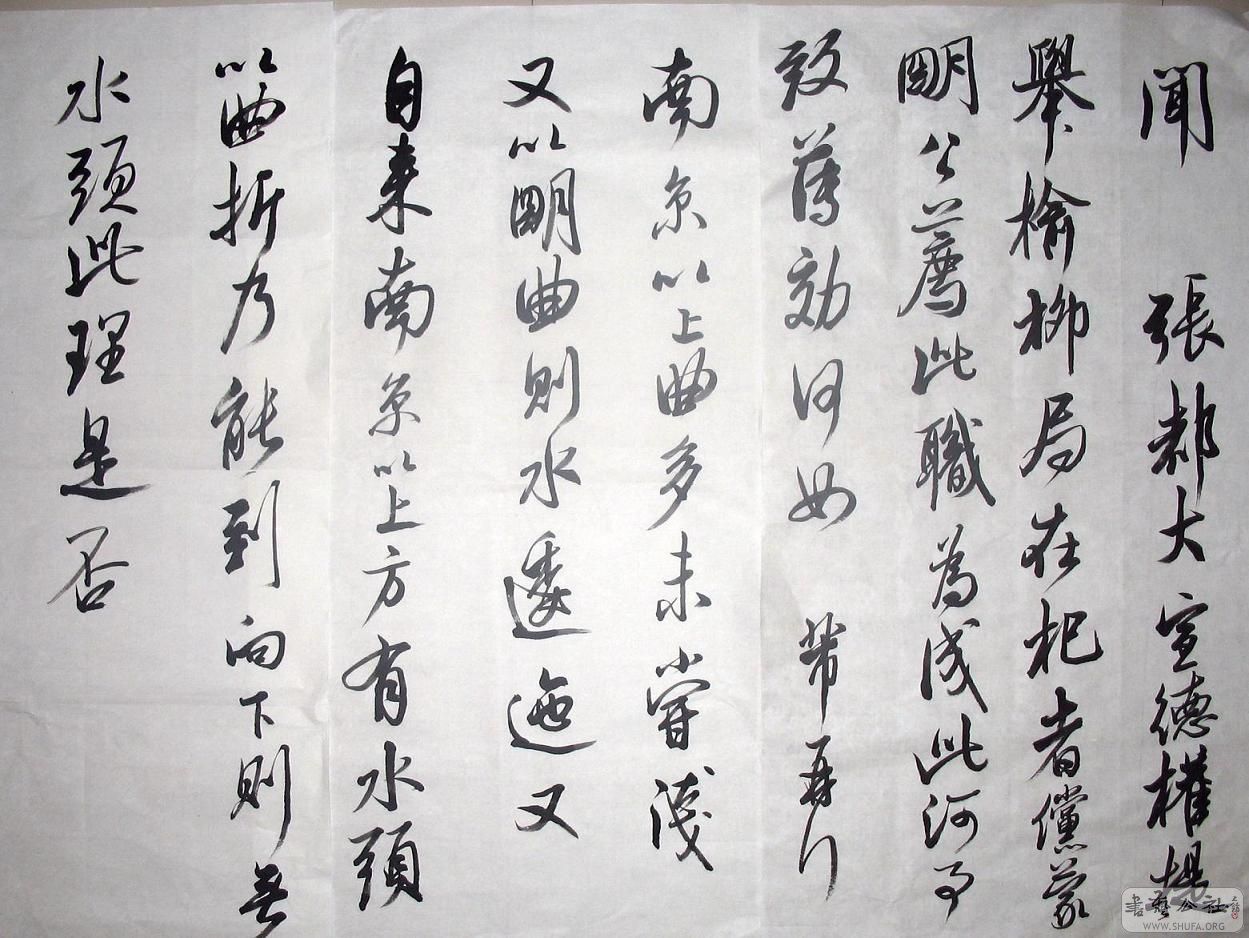 聞 張都大宣德權提
舉榆柳局在杞者儻蒙
明公薦此職為成此河事
致薄効何如 芾再行
南京以上曲多未嘗淺
又以明曲則水逶迤又
自来南京以上方有水頭
以曲折乃能到向下則無
水頭此理是否
書藝公社
WWW.SHUFA.ORG